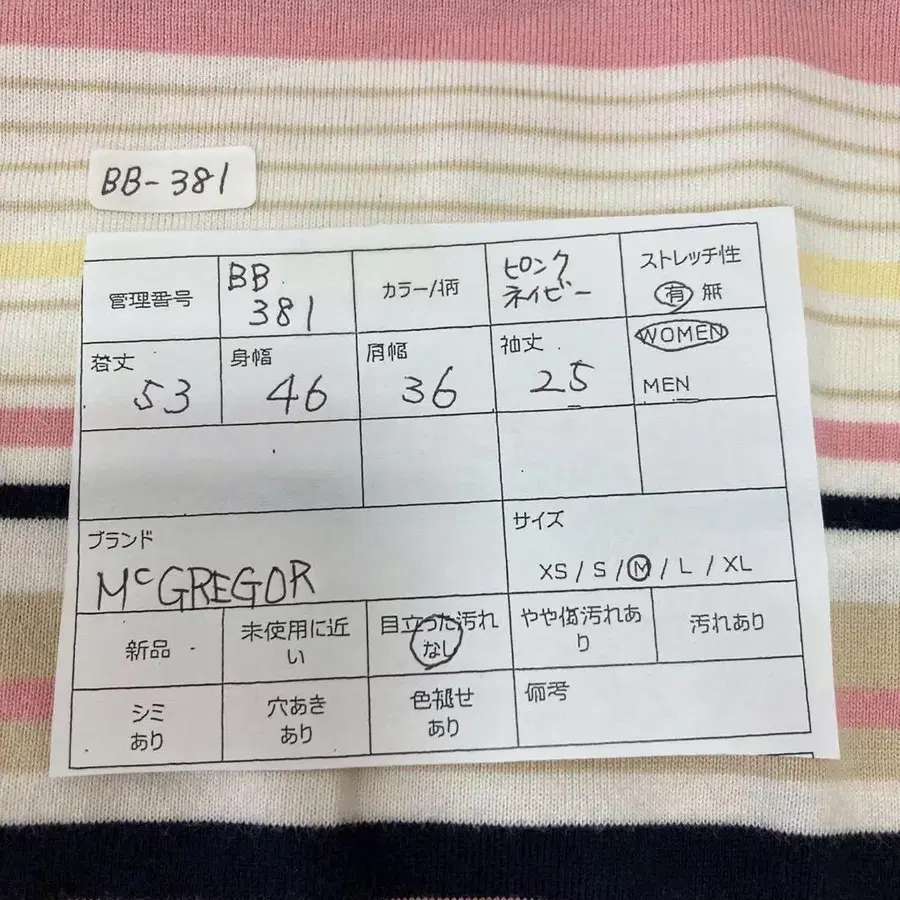 BB-381
管理番号
BB
381
カラー/柄
ピンク
ネイビー
ストレッチ性
有 無
着丈
53
身幅
46
肩幅
36
袖丈
25
WOMEN
MEN
ブランド
McGREGOR
サイズ
XS / S / M / L / XL
新品
未使用に近
い
目立った汚れ
なし
やや傷汚れあ
り
汚れあり
シミ
あり
穴あき
あり
色褪せ
あり
備考